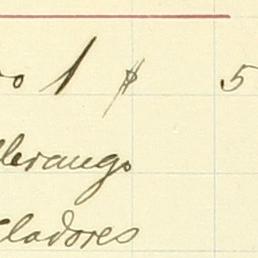 ro 1 $ 5
llerango
cladores